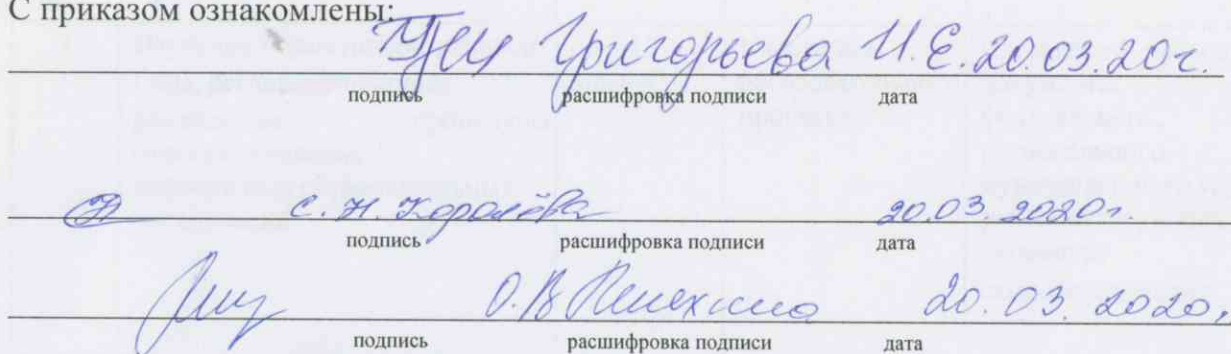 С приказом ознакомлены:
Григорьева И.Е. 20.03.20г.
подпись расшифровка подписи дата
С. Н. Королёва 20.03.2020г.
подпись расшифровка подписи дата
О.В 20.03.2020г
подпись расшифровка подписи дата